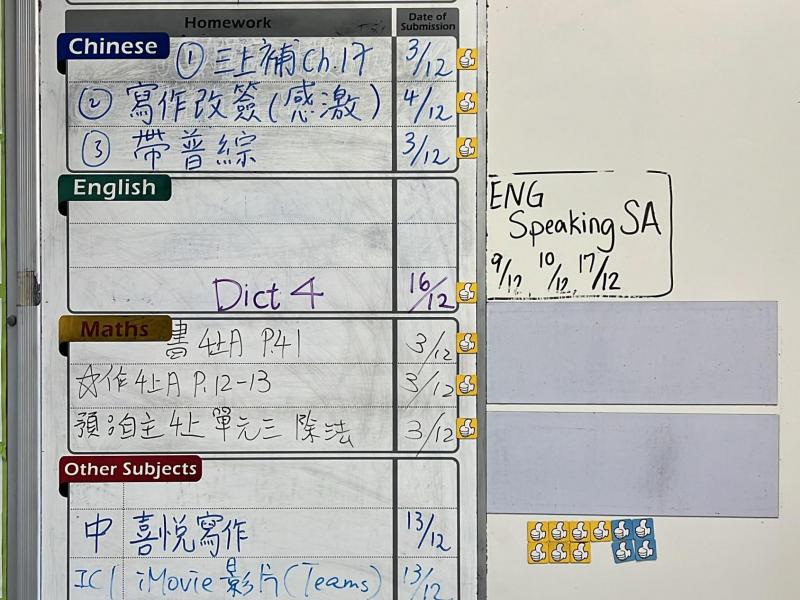 Homework
Date of Submission
Chinese
① 三上補 Ch.17 3/12
② 寫作改簽(感激) 4/12
③ 帶普綜 3/12
English
Dict 4 16/12
ENG
Speaking SA
9/12 10/12, 17/12
Maths
書 4上A P.41 3/12
☆作 4上A P.12-13 3/12
預治主 4上 單元三 除法 3/12
Other Subjects
中 喜悅寫作 13/12
ICT iMovie 影片(Teams) 13/12